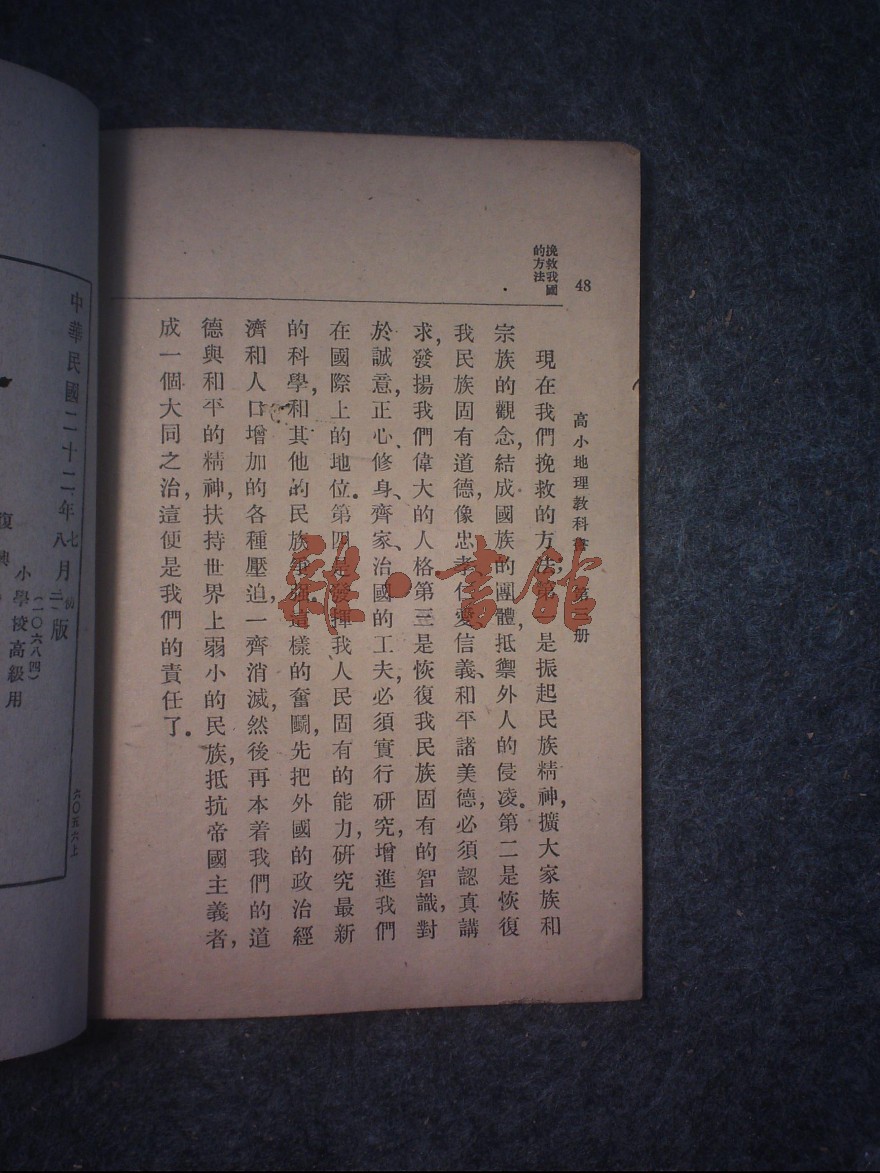 48
高小地理教科書 第三册
挽救我國
的方法
現在我們挽救的方法,第一是振起民族精神,擴大家族和
宗族的觀念,結成國族的團體,抵禦外人的侵凌。第二是恢復
我民族固有道德,像忠孝、仁愛、信義、和平諸美德,必須認真講
求,發揚我們偉大的人格。第三是恢復我民族固有的智識,對
於誠意、正心、修身、齊家、治國的工夫,必須實行研究,增進我們
在國際上的地位。第四是發揮我人民固有的能力,研究最新
的科學,和其他的民族爭強。這樣的奮鬭,先把外國的政治經
濟和人口增加的各種壓迫一齊消滅,然後再本着我們的道
德與和平的精神,扶持世界上弱小的民族,抵抗帝國主義者,
成一個大同之治,這便是我們的責任了。
小學校高級用
(一〇六八四)
復興
中華民國二十二年七月初版
八 二
六〇五六上
雜·書館